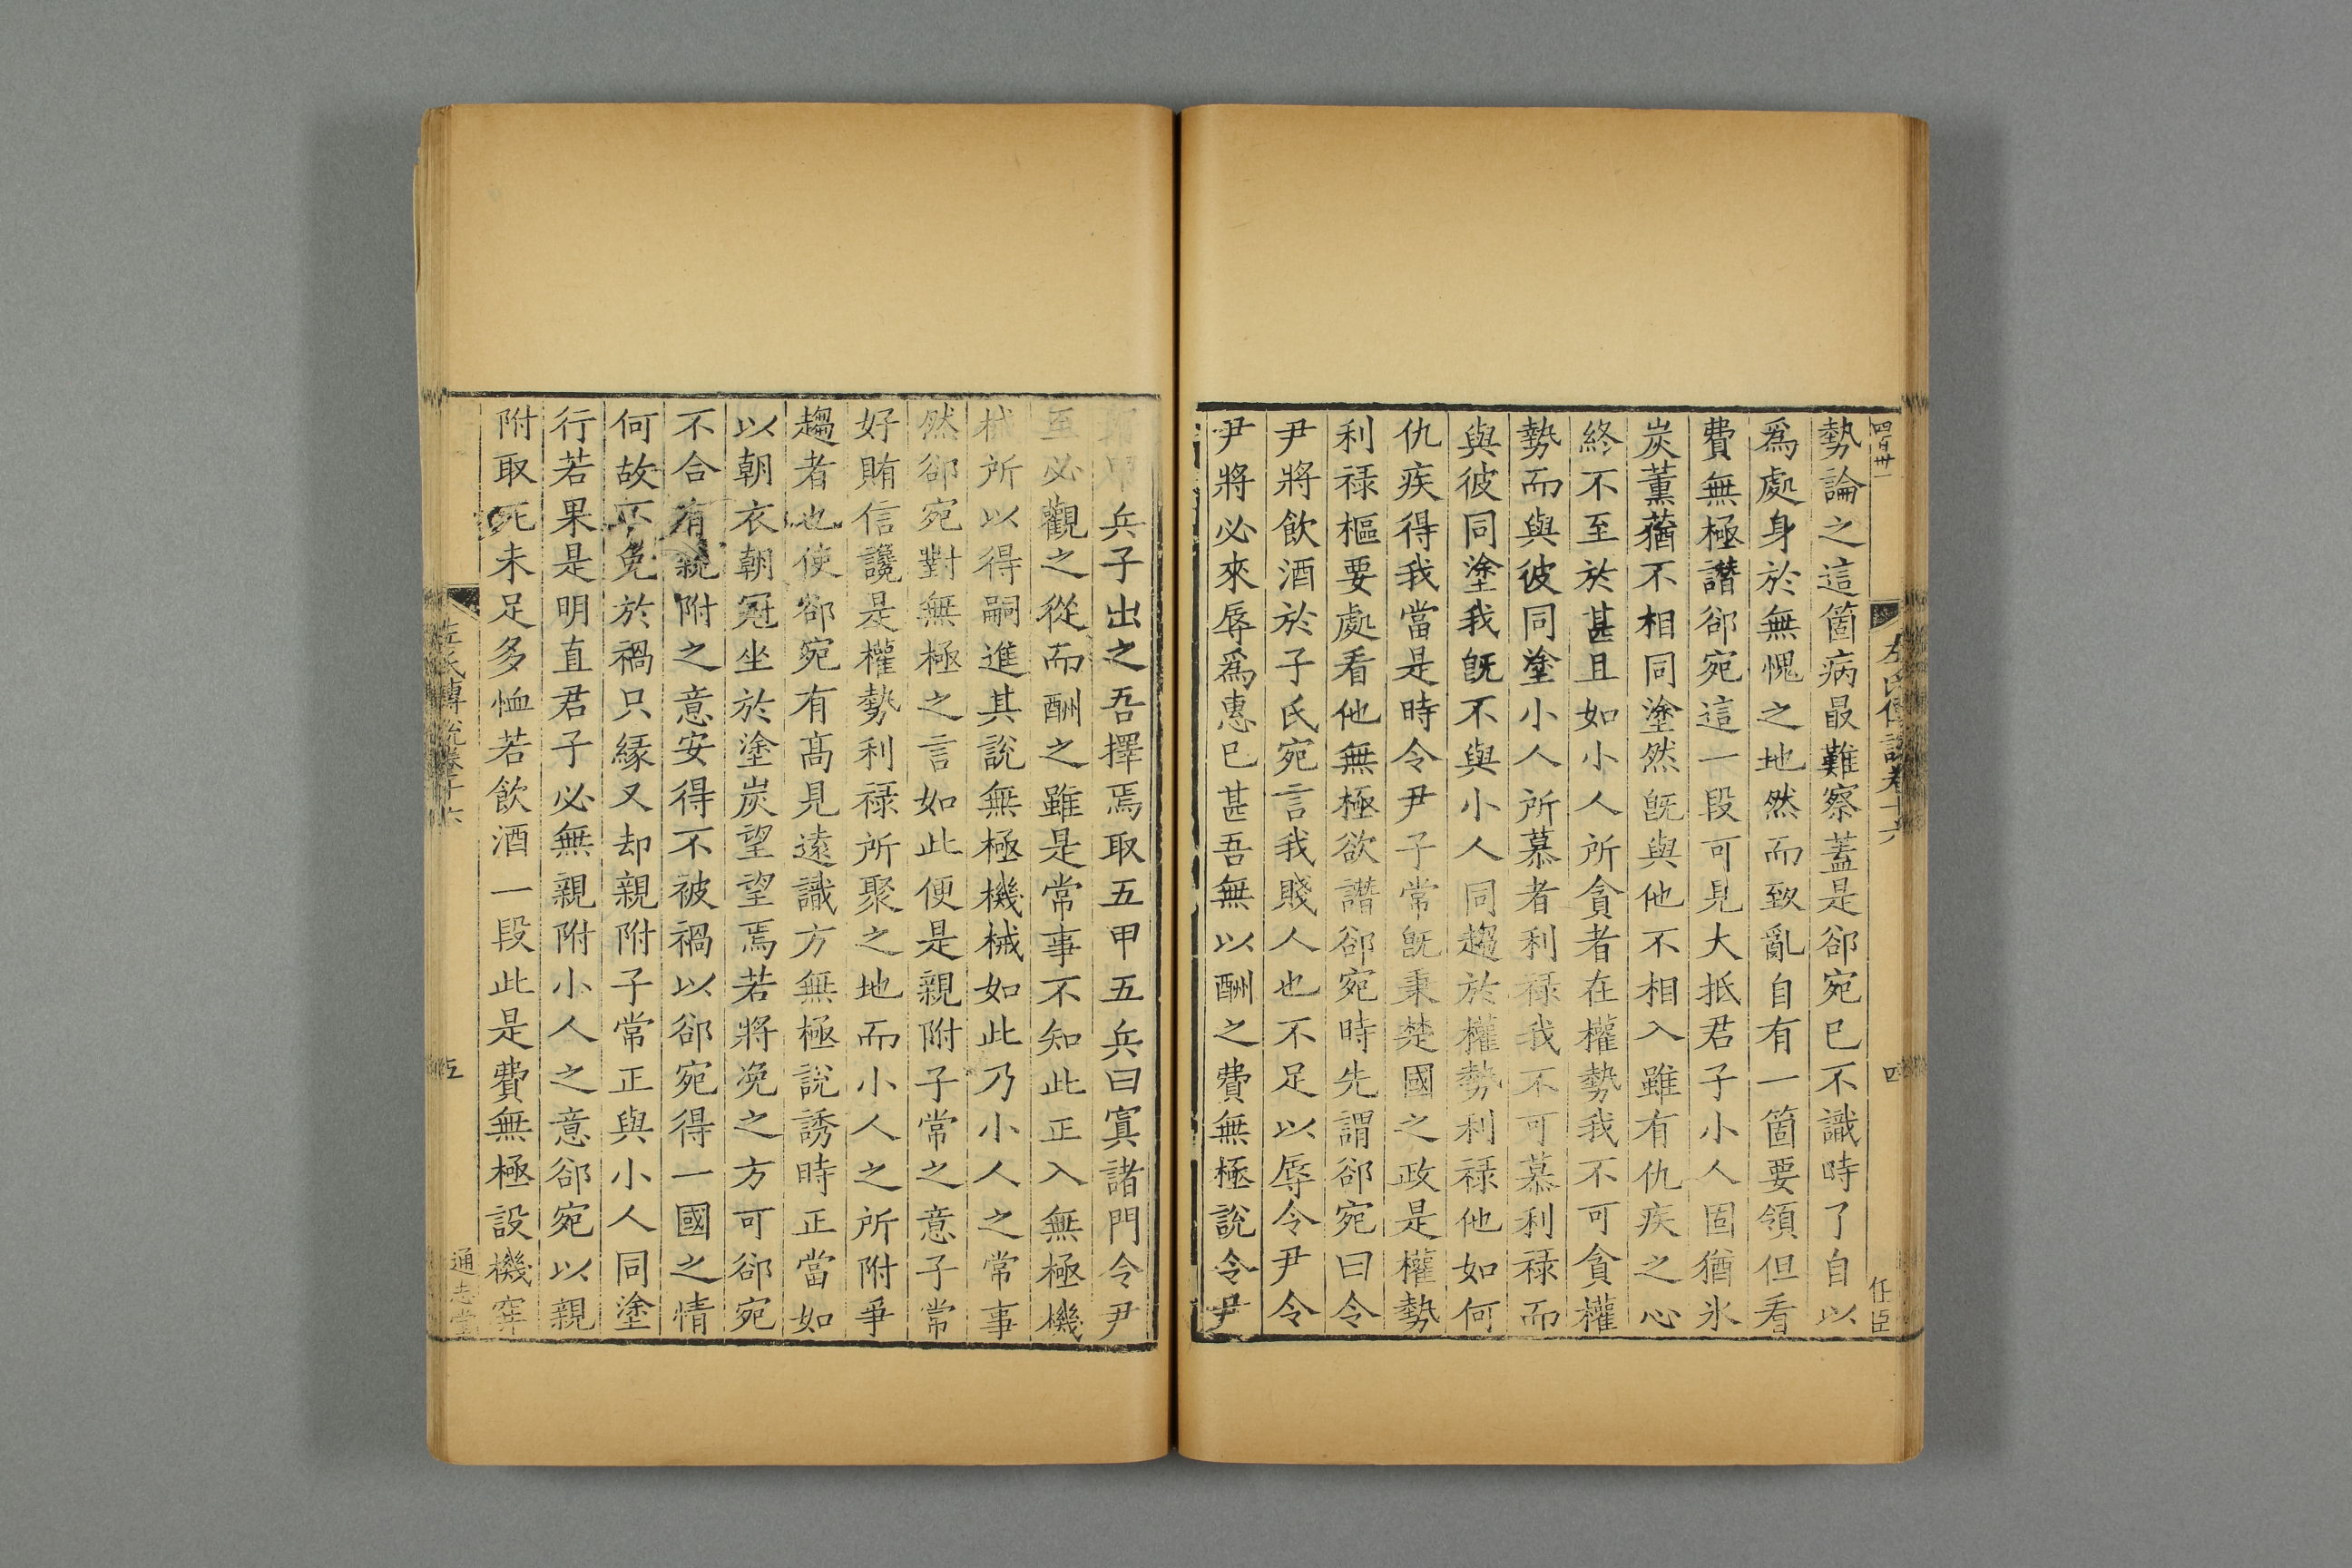 勢論之這箇病最難察蓋是郤宛已不識時了自以
爲處身於無愧之地然而致亂自有一箇要領但看
費無極譖郤宛這一段可見大抵君子小人固猶氷
炭薰蕕不相同塗然旣與他不相入雖有仇疾之心
終不至於甚且如小人所貪者在權勢我不可貪權
勢而與彼同塗小人所慕者利禄我不可慕利禄而
與彼同塗我旣不與小人同趨於權勢利禄他如何
仇疾得我當是時令尹子常旣秉楚國之政是權勢
利禄樞要處看他無極欲譖郤宛時先謂郤宛曰令
尹將飲酒於子氏宛言我賤人也不足以辱令尹令
尹將必來辱爲惠已甚吾無以酬之費無極說令尹
兵子出之吾擇焉取五甲五兵曰寘諸門令尹
至必觀之從而酬之雖是常事不知此正入無極機
械所以得嗣進其說無極機械如此乃小人之常事
然郤宛對無極之言如此便是親附子常之意子常
好賄信讒是權勢利禄所聚之地而小人之所附爭
趨者也使郤宛有髙見遠識方無極說誘時正當如
以朝衣朝冠坐於塗炭望望焉若將浼之方可郤宛
不合有親附之意安得不被禍以郤宛得一國之情
何故不免於禍只緣又却親附子常正與小人同塗
行若果是明直君子必無親附小人之意郤宛以親
附取死未足多恤若飲酒一段此是費無極設機穽
左氏傳說卷十六
五
通志堂
左氏傳說卷十六
四
任臣